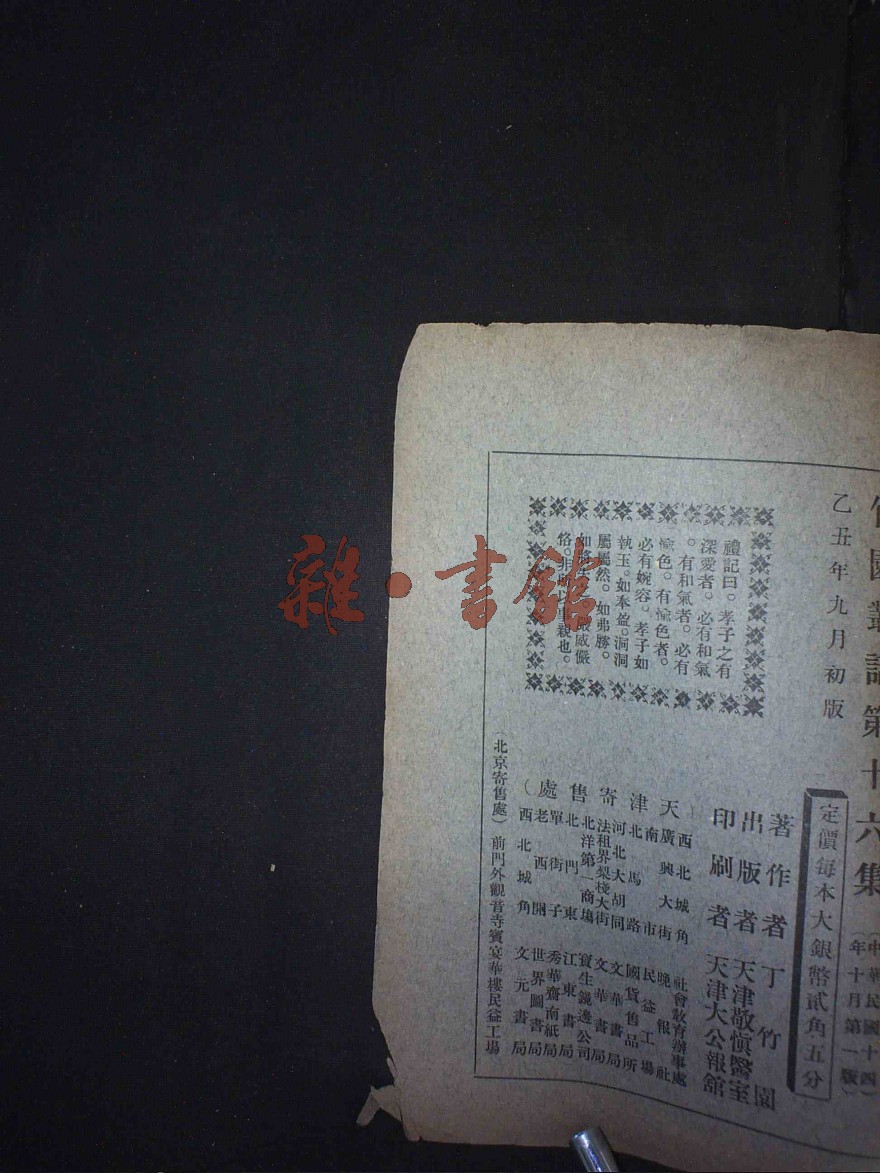 園叢話第十六集
(中華民國十四
年十月第一版)
乙丑年九月初版
定價每本大銀幣貳角五分
著作者 丁竹園
出版者 天津敬慎醫室
印刷者 天津大公報館
禮記曰。孝子之有
深愛者。必有和氣
。有和氣者。必有
愉色。有愉色者。
必有婉容。孝子如
執玉。如奉盈。洞洞
屬屬然。如弗勝。
如將 嚴威儼
恪。非所以事親也。
(天津寄售處)
西北城角 社會教育辦事處
廣興大街 晚報社
南市 民益工場
北馬路 國貨售品所
河北大胡同 文華書局
法租界梨棧大街 文華書局
北洋第一商場 寶生鏡邊公司
北門東 江東書局
單街子 秀華齋南紙局
老西開 世界圖書局
西北城角 文元書局
(北京寄售處) 前門外觀音寺賓宴華樓民益工場
雜·書館